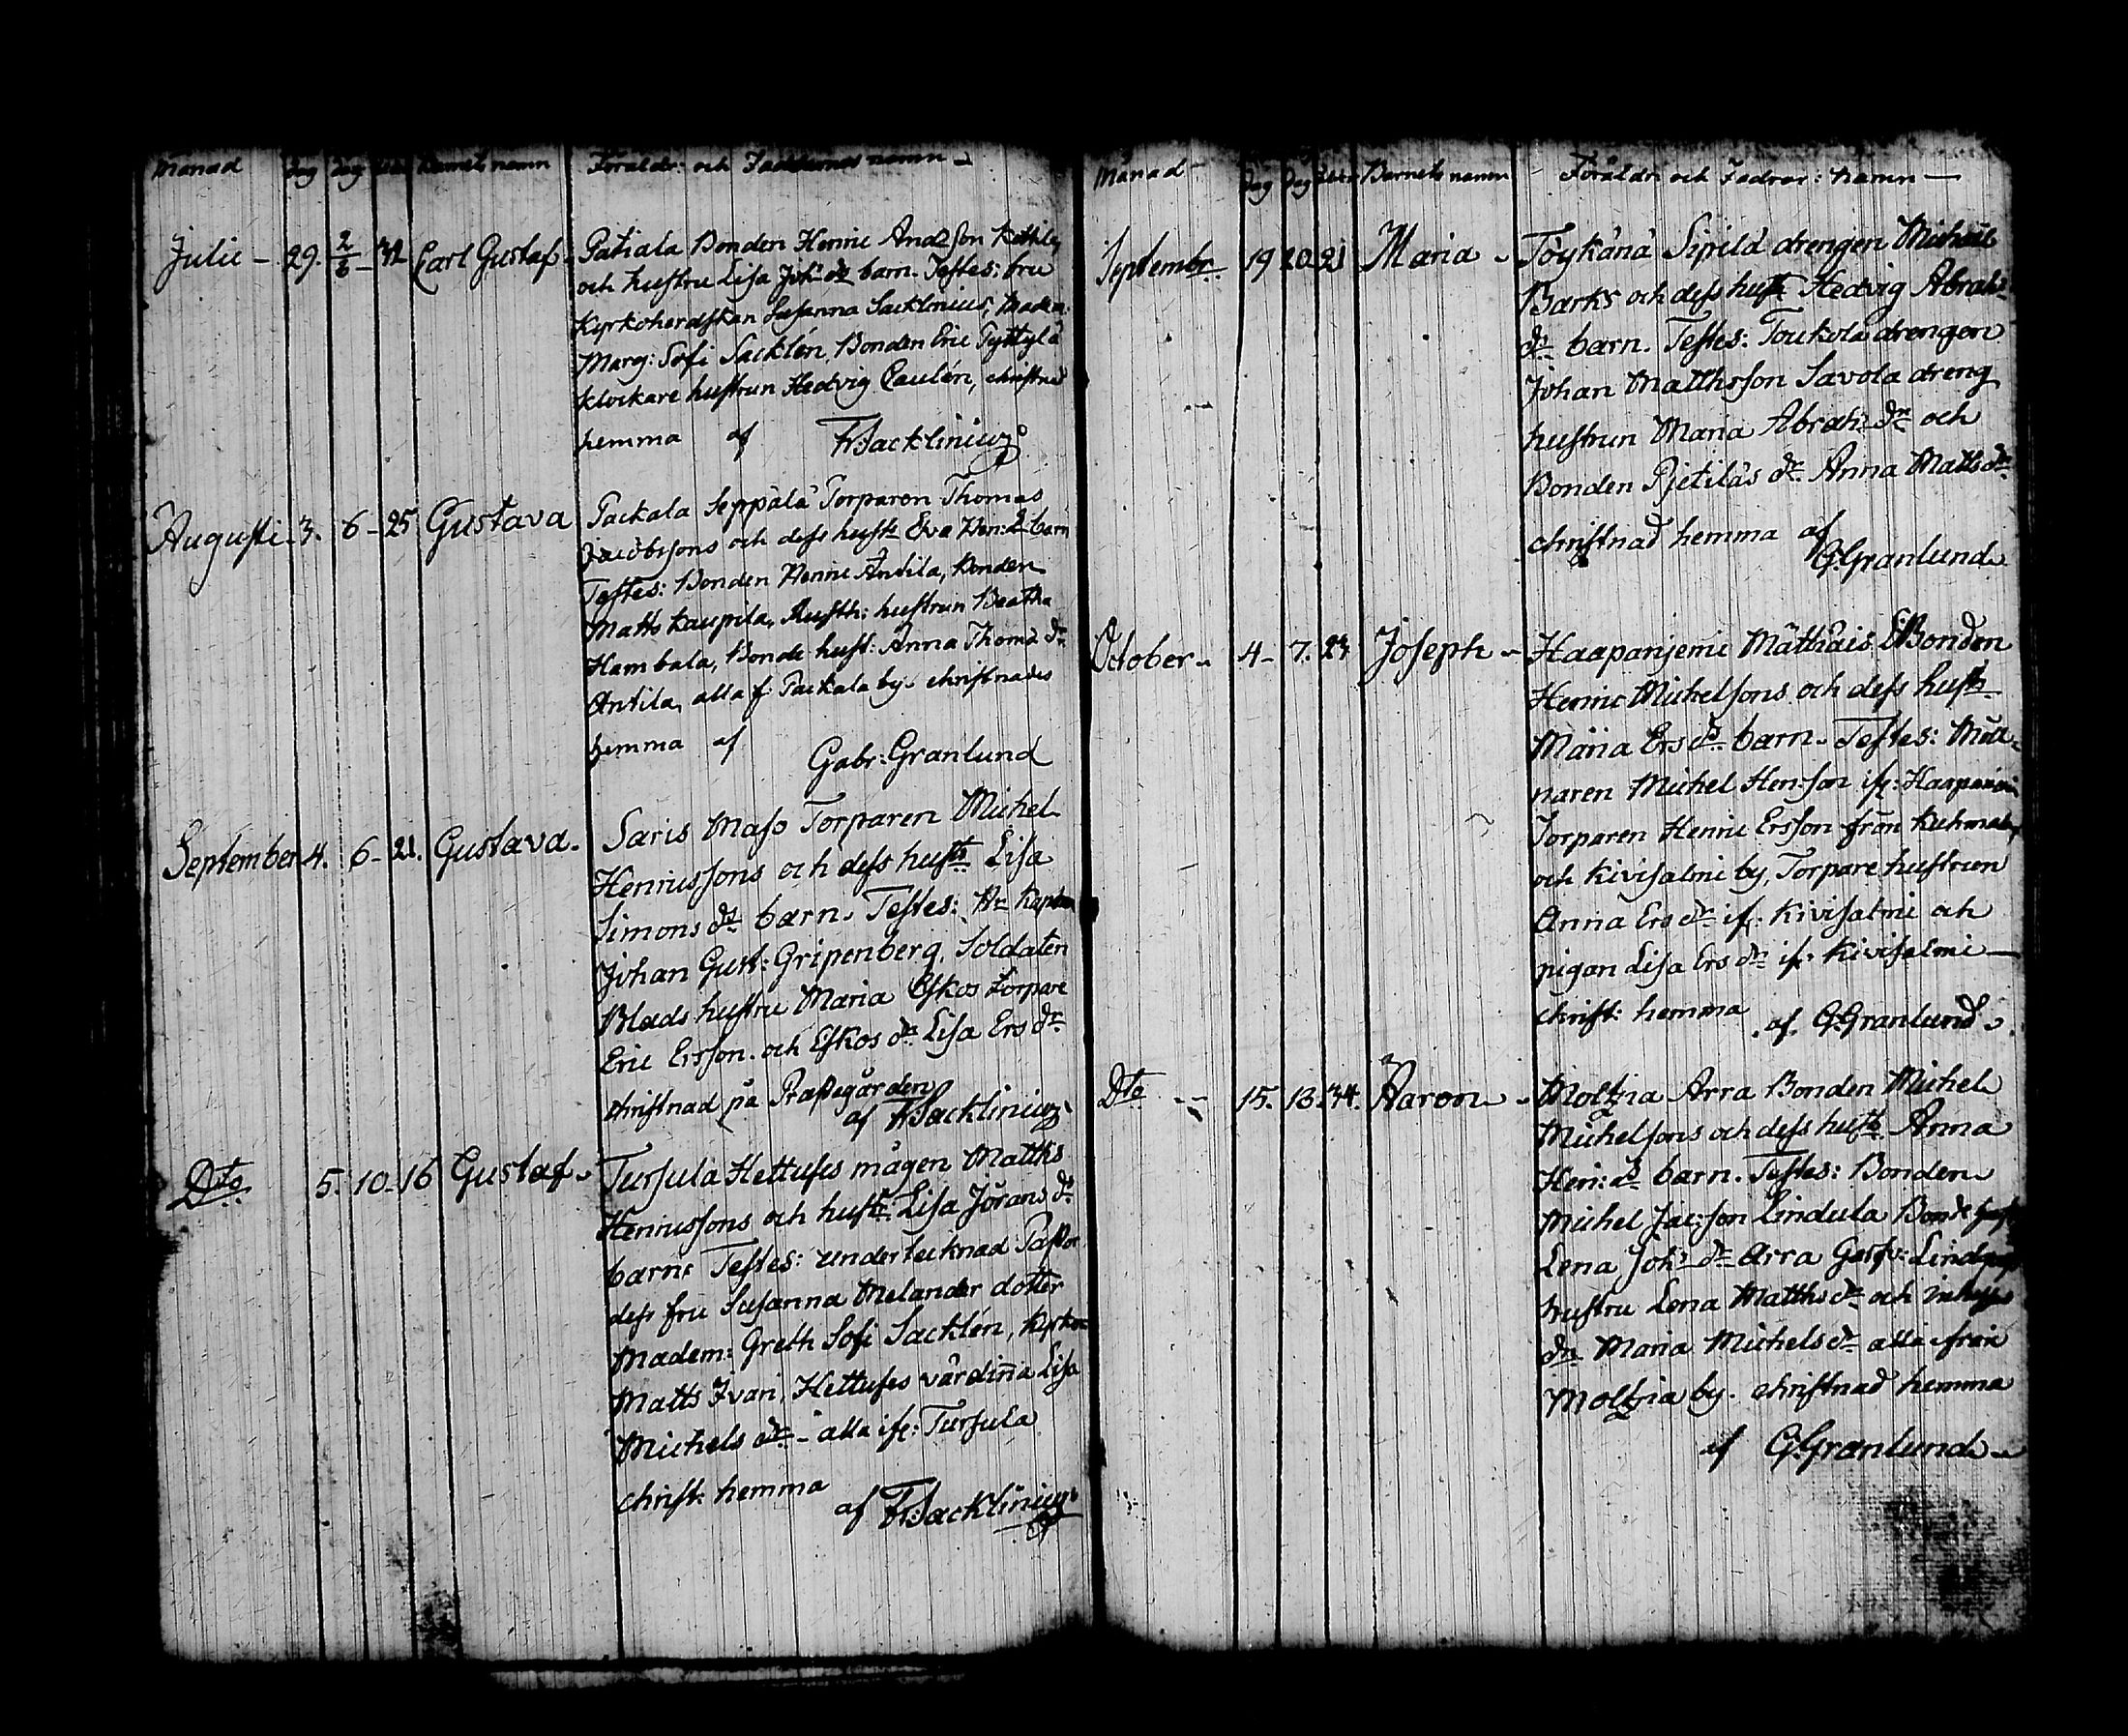 Månad Dag Dag Barnets namn Föräldr: och Faddernas namn
Julii 29. 2/8 32 Carl Gustaf Patiala Bonden Henric Andsson
och hustru Lisa Joh: dr barn. Testes: fru
Kyrkoherdskan Susanna Sacklinius, Madem:
Marg: Sofi Sacklén, Bonden Eric Pyttylä
klockare hustrun Hedvig Caulén, christnad
hemma af Fr: Sacklinius
Augusti 3. 6 25 Gustava Packala Seppälä Torparen Thomas
Jacobssons och dess hustr Eva Hen: dr barn
Testes: Bonden Henric Antila, Bonden
Matts Kaupila, Rusth: hustrun Beatha
Hambala, Bonde hust: Anna Thoma dr
Antila, alla f. Packala by. christnades
hemma af
Gabr: Granlund
September 4. 6 21. Gustava Saris Maso Torparen Michel
Henricssons och dess hustr Lisa
Simons dr barn. Testes: Hr
Johan Gust: Gripenberg, Soldaten
Blads hustru Maria Eskos Torpare
Eric Ersson och Eskos dr Lisa Ers dr
christnad på Prästgården
af Fr: Sacklinius
Dto 5. 10 16 Gustaf Tursula Hettufes mågen Matths
Henricssons och hustr Lisa Jörans dr
barn. Testes: undertecknad Pastor
dess fru Susanna Melander dotter
Madem: Greth Sofi Sacklén,
Matts Ivari, Hettufes värdinna Lisa
Michels dr alla ifr: Tursula
christ: hemma
af Fr: Sacklinius
Månad Dag Dag Barnets namn Föräldr: och Fadrar: namn
Septembr. 19 20 21 Maria Töykänä Sipilä drengen Michael
Barks och dess hustr Hedvig Abrah:
dr barn. Testes: Toukola drengen
Johan Matthsson Savola dreng
hustrun Maria Abrah: dr och
Bonden Pjetiläs dr Anna Matts dr
christnad hemma af
G: Granlund
October 4 7. 23 Joseph Haapanjemi Matthais Bonden
Henric Michelsons och dess hustr
Maria Ers dr barn. Testes: Möll
naren Michel Hensson ifr: Haapaniemi
Torparen Henric Ersson från
och Kivisalmi by, Torpare hustrun
Anna Ers dr ifr: Kivisalmi och
pigan Lisa Ers dr ifr: Kivisalmi
christ: hemma af G: Granlund
Dto 15. 18. 34. Aaron Moltzia Arra Bonden Michel
Michelsons och dess hustr Anna
Hen: dr barn. Testes: Bonden
Michel Jac:son Lindula Bonde
Lena Joh: dr Arra
hustru Lena Matths dr och
dr Maria Michels dr alla från
Moltzia by. christnad hemma
af G: Granlund